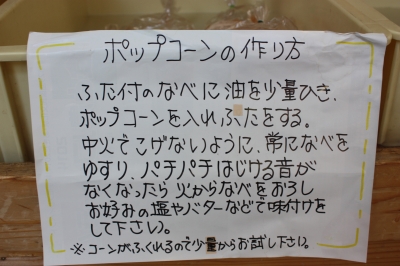 ポップコーンの作り方
ふた付のなべに油を少量ひき、
ポップコーンを入れふたをする。
中火でコゲないように、常になべを
ゆすり、パチパチはじける音が
なくなったら火からなべをおろし
お好みの塩やバターなどで味付けを
して下さい。
※コーンがふくれるので少量からお試し下さい。